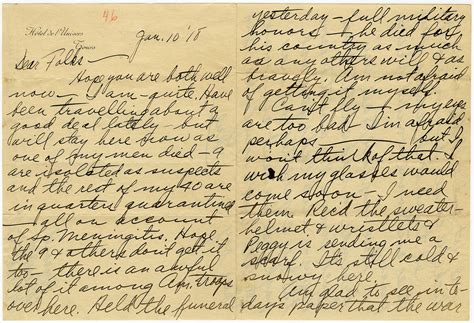 46
Hôtel de l'Univers
Tours
Jan. 10 '18
Dear Folks—
Hope you are both well
now — I am - quite. Have
been travelling about a
good deal lately — but
will stay here now as
one of my men died — 9
are isolated as suspects
and the rest of my 40 are
in quarters quarantined
— all on account
of Sp. Meningitis. Hope
the 9 & others don't get it
too — there is an awful
lot of it among Am. troops
over here. Held the funeral
yesterday — full military
honors — he died for
his country as much
as any others will & as
bravely. Am not afraid
of getting it myself.
Can't fly — my eyes
are too bad I'm afraid
perhaps but I
won't think of that. I
wish my glasses would
come soon — I need
them. Rec'd the sweater-
helmet & wristlets &
Peggy is sending me a
scarf. It's still cold &
snowy here.
Am glad to see in to-
days paper that the war